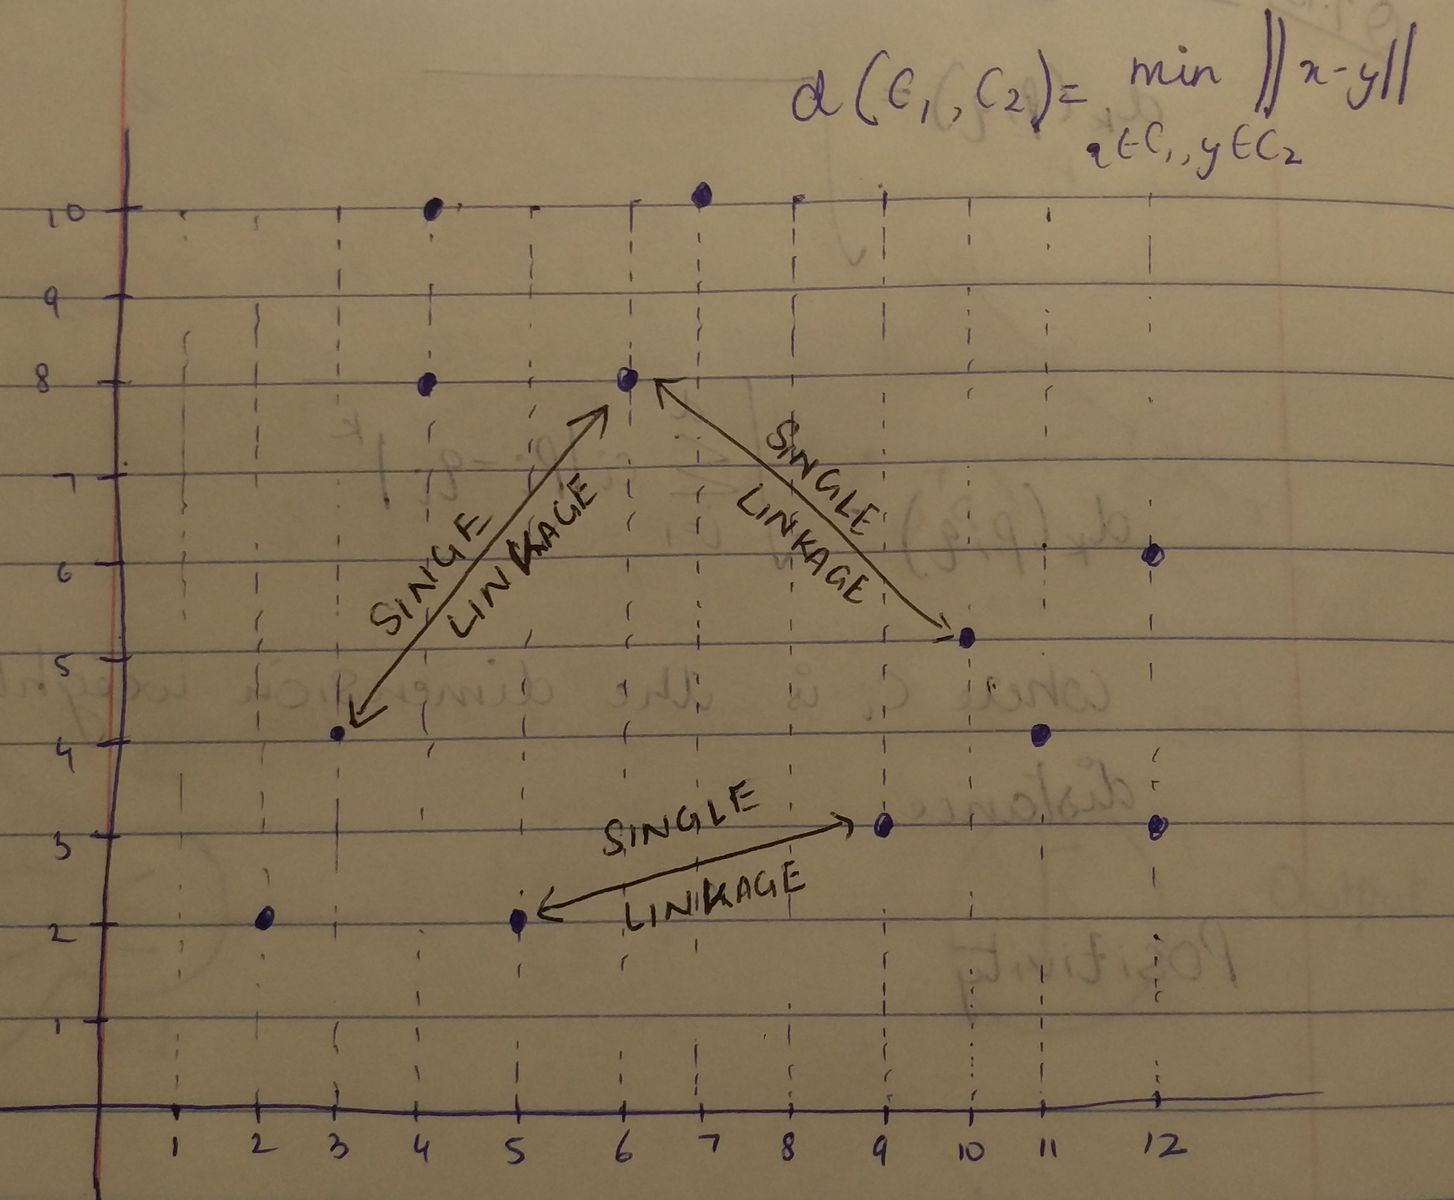 d(C₁, C₂) = min ||x-y||
x∈C₁, y∈C₂
10
9
8
7
6
5
4
3
2
1
SINGLE
LINKAGE
SINGLE
LINKAGE
SINGLE
LINKAGE
1 2 3 4 5 6 7 8 9 10 11 12